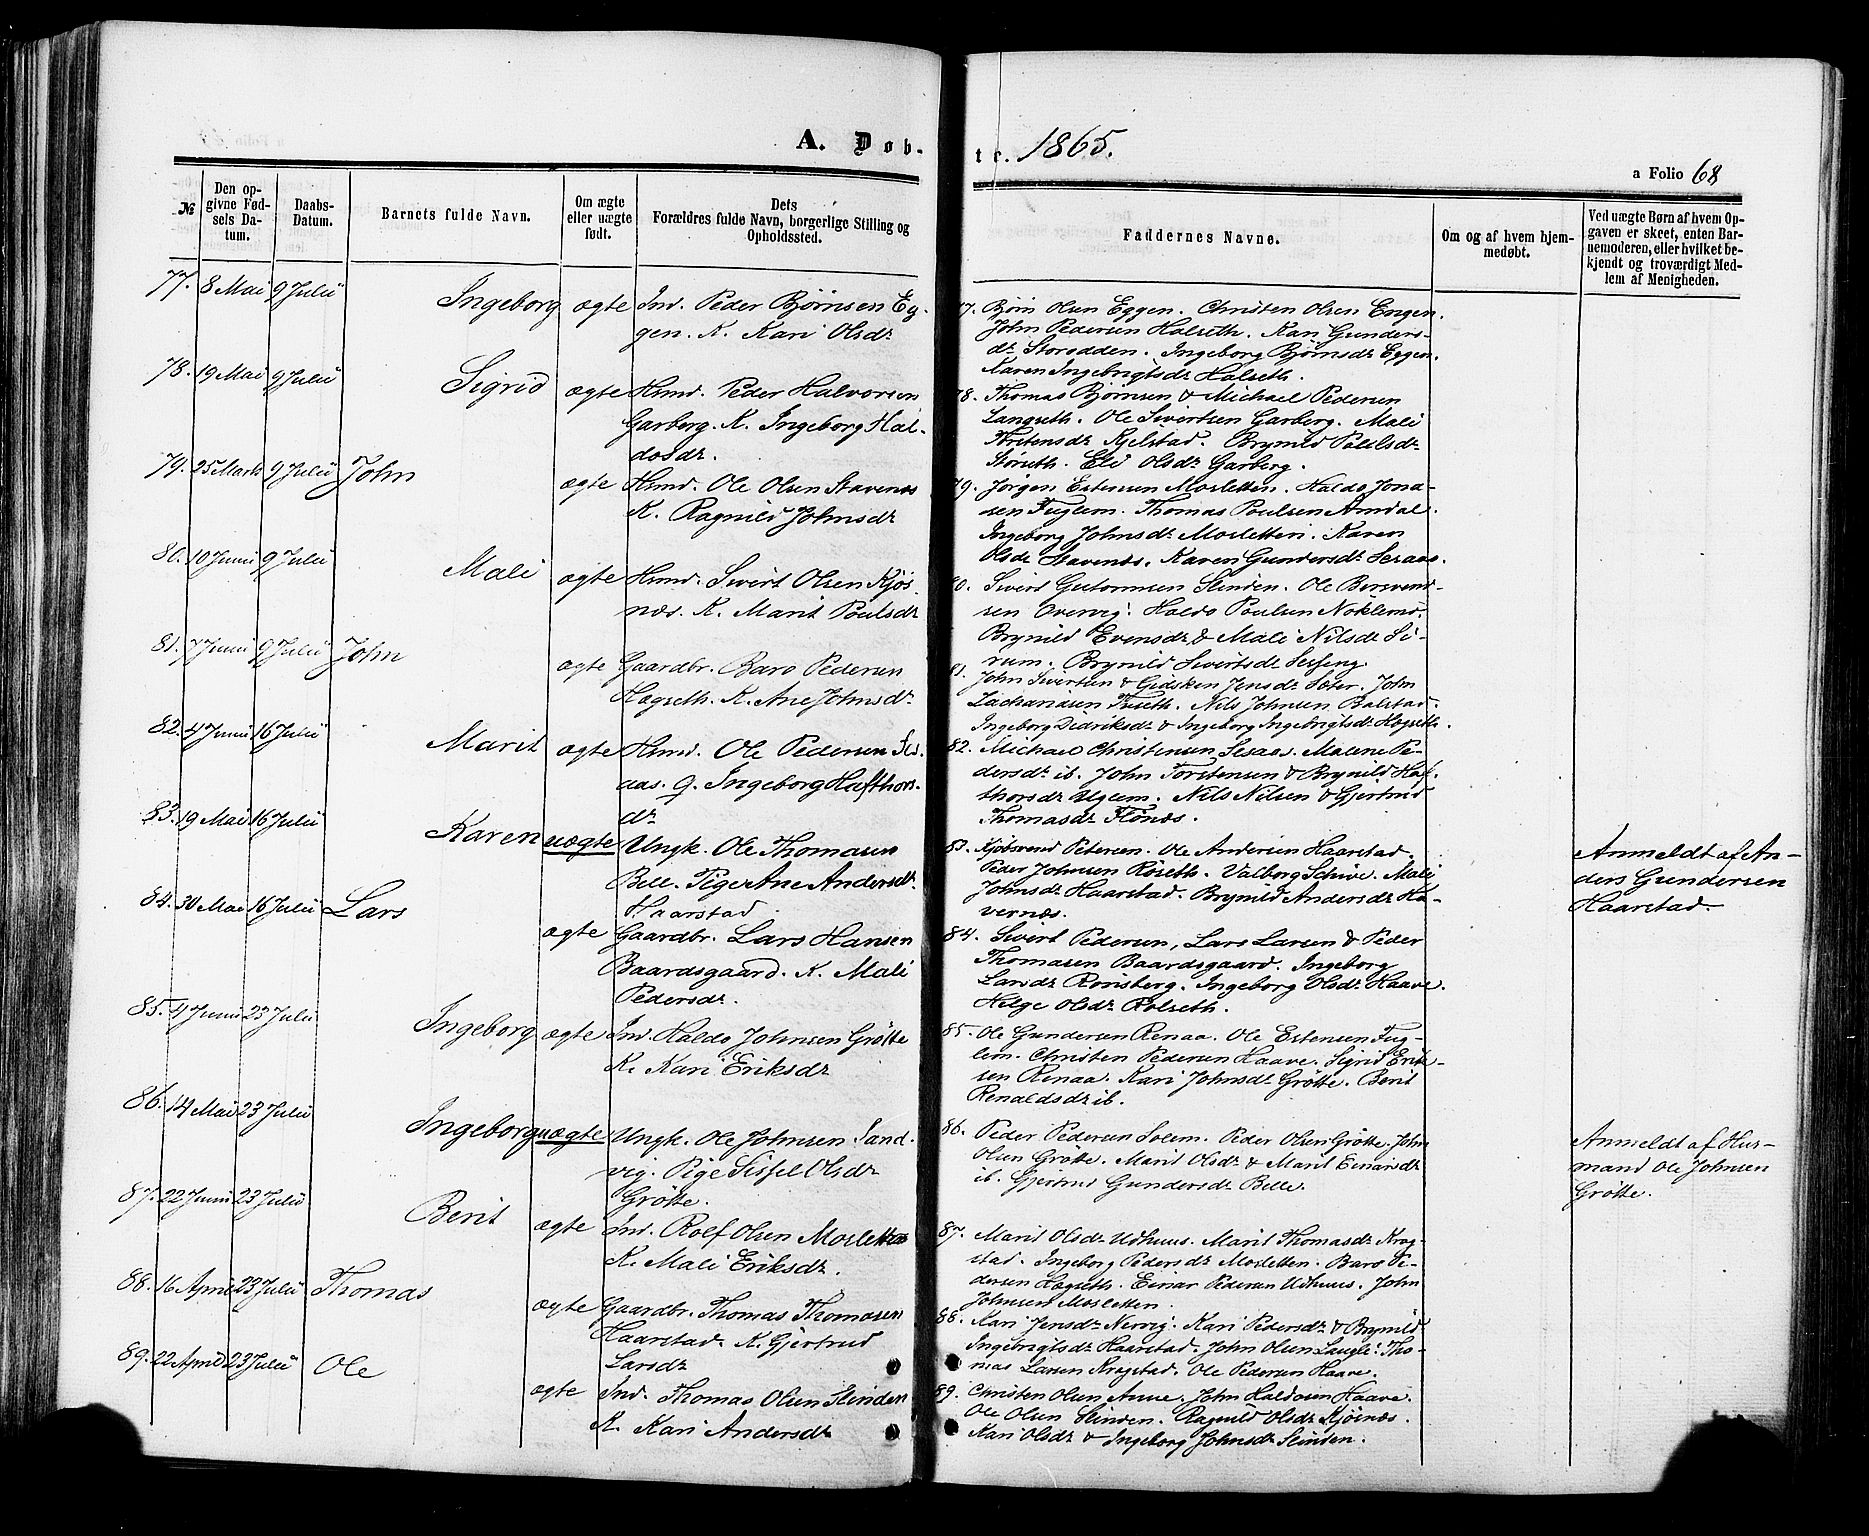 A. Døb-
te. 1865.
a Folio 68
№
Den op-
givne Fød-
sels Da-
tum.
Daabs-
Datum.
Barnets fulde Navn.
Om ægte
eller uægte
født.
Dets
Forældres fulde Navn, borgerlige Stilling og
Opholdssted.
Faddernes Navne.
Om og af hvem hjem-
medøbt.
Ved uægte Børn af hvem Op-
gaven er skeet, enten Bar-
nemoderen, eller hvilket be-
kjendt og troværdigt Med-
lem af Menigheden.
77. 8 Mai 9 Julii Ingeborg ægte Ind. Peder Bjørnsen Eg-
gen. K. Kari Olsdr
77. Bjørn Olsen Eggen. Christen Olsen Engen.
John Pedersen Halseth. Kari Gunders-
dr Storødden. Ingeborg Bjørnsdr Eggen.
Karen Ingebrigtsdr Halseth.
78. 19 Mai 9 Julii Sigrid ægte Hsmd. Peder Halvorsen
Garberg. K. Ingeborg Hal-
dosdr.
78. Thomas Bjørnsen & Michael Pedersen
Langseth. Ole Sivertsen Garberg. Mali
Torstensdr Kjelstad. Brynild Poulsdr
Størseth. Eli Olsdr Garberg.
79. 25 Marts 9 Julii John ægte Hsmd. Ole Olsen Stavenæs
K. Ragnild Johnsdr
79. Jørgen Estensen Mosletten. Haldo Jona-
sen Fuglem. Thomas Poulsen Amdal.
Ingeborg Johnsdr Mosletten. Karen
Olsdr Stavenæs. Karen Gundersdr Sesaas.
80. 10 Junii 9 Julii Mali ægte Hsmd. Sivert Olsen Kjøs-
næs. K. Marit Poulsdr
80. Sivert Guttormsen Slinden. Ole Bersvend-
sen Overvig. Haldo Poulsen Noklemo.
Brynild Evensdr & Mali Nilsdr Si-
rum. Brynild Sivertsdr Sesseng
81. 7 Junii 9 Julii John ægte Gaardbr. Baro Pedersen
Hogseth. K. Ane Johnsdr
81. John Sivertsen & Gidsken Jensdr Sæter. John
Zachariasen Tuseth. Nils Johnsen Balstad.
Ingeborg Didriksdr & Ingeborg Ingebrigtsdr Hogseth.
82. 4 Junii 16 Julii Marit ægte Hsmd. Ole Pedersen Ses-
aas. G. Ingeborg Hafthors-
dr
82. Michael Christensen Sesaas. Malene Pe-
dersdr ib. John Torstensen & Brynild Haf-
thorsdr Uglem. Nils Nilsen & Gjertrud
Thomasdr Flønæs.
83. 19 Mai 16 Julii Karen uægte Ungk. Ole Thomasen
Bell. Pige Ane Andersdr
Haarstad
83. Kjøbsvend Petersen. Ole Andersen Haarstad.
Peder Johnsen Røseth. Valborg Schive. Mali
Johnsdr Haarstad. Brynild Andersdr Ha-
vernæs.
Anmeldt af An-
ders Gundersen
Haarstad.
84. 30 Mai 16 Julii Lars ægte Gaardbr. Lars Hansen
Baardsgaard. K. Mali
Pedersdr.
84. Sivert Pedersen, Lars Larsen & Peder
Thomasen Baardsgaard. Ingeborg
Larsdr Rønsberg. Ingeborg Olsdr Haave.
Helge Olsdr Rolseth.
85. 4 Junii 23 Julii Ingeborg ægte Ind. Haldo Johnsen Grøtte
K. Kari Eriksdr
85. Ole Gundersen Renaa. Ole Estensen Fug-
lem. Christen Pedersen Haave. Sigrid Erik-
sen Renaa. Kari Johnsdr Grøtte. Berit
Renaldsdr ib.
86. 14 Mai 23 Julii Ingeborg uægte Ungk. Ole Johnsen Sand-
vig. Pige Sissel Olsdr
Grøtte.
86. Peder Pedersen Solem. Peder Olsen Grøtte. John
Olsen Grøtte. Marit Olsdr & Marit Einarsdr
ib. Gjertrud Gundersdr Belle.
Anmeldt af Hus-
mand Ole Johnsen
Grøtte.
87. 22 Junii 23 Julii Berit ægte Ind. Rolf Olsen Mosletten
K. Mali Eriksdr.
87. Marit Olsdr Udhuus. Marit Thomasdr Krog-
stad. Ingeborg Pedersdr Mosletten. Baro Pe-
dersen Hogseth. Einar Pedersen Udhuus. John
Johnsen Mosletten.
88. 16 April 23 Julii Thomas ægte Gaardbr. Thomas Thomasen
Haarstad. K. Gjertrud
Larsdr
88. Kari Jensdr Nervig. Kari Pedersdr & Brynild
Ingebrigtsdr Haarstad. John Olsen Laugle. Tho-
mas Larsen Krogstad. Ole Pedersen Haave.
89. 22 April 23 Julii Ole ægte Ind. Thomas Olsen Slinden
K. Kari Andersdr
89. Christen Olsen Aune. John Haldosen Haave.
Ole Olsen Slinden. Ragnild Olsdr Kjøsnæs.
Kari Olsdr & Ingeborg Johnsdr Slinden.